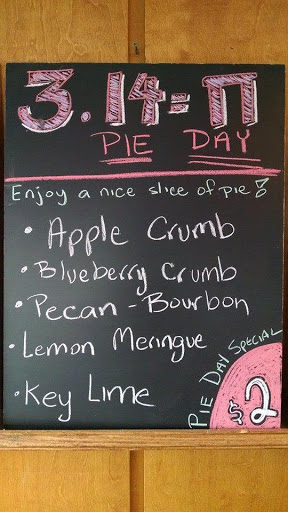 3.14=Π
PIE DAY
Enjoy a nice slice of pie!
• Apple Crumb
• Blueberry Crumb
• Pecan-Bourbon
• Lemon Meringue
• Key Lime
PIE DAY SPECIAL
$2